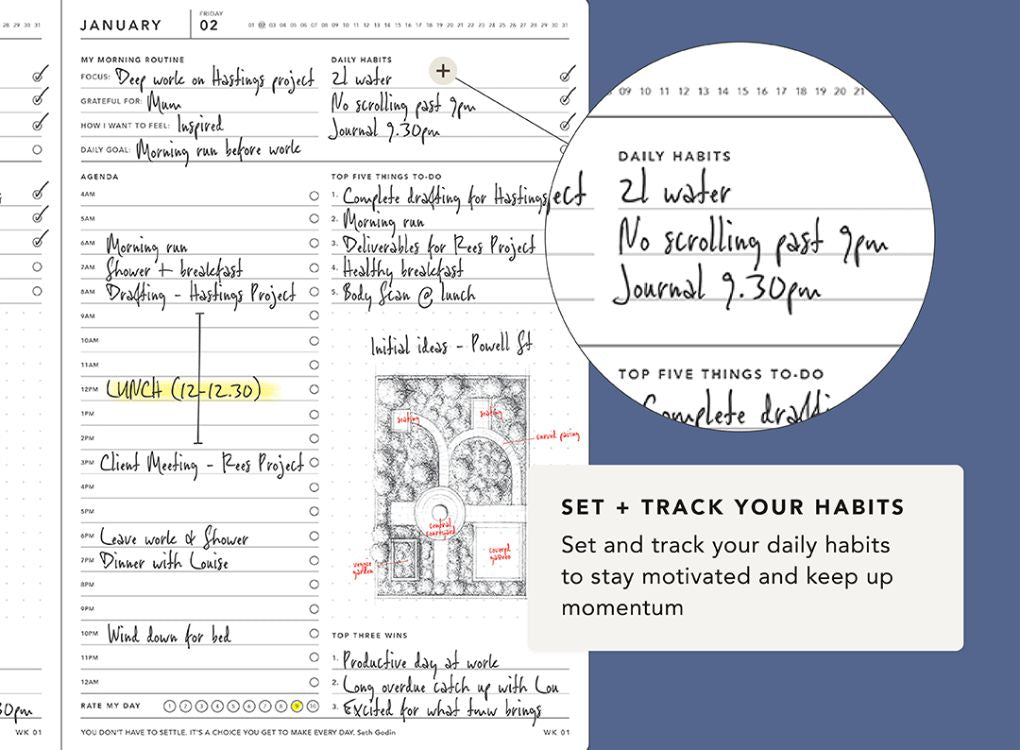 28 29 30 31
JANUARY
FRIDAY
02
01 02 03 04 05 06 07 08 09 10 11 12 13 14 15 16 17 18 19 20 21 22 23 24 25 26 27 28 29 30 31
MY MORNING ROUTINE
FOCUS: Deep work on Hastings project
GRATEFUL FOR: Mum
HOW I WANT TO FEEL: Inspired
DAILY GOAL: Morning run before work
DAILY HABITS
2l water
No scrolling past 9pm
Journal 9.30pm
AGENDA
4AM
5AM
6AM Morning run
7AM Shower + breakfast
8AM Drafting - Hastings Project
9AM
10AM
11AM
12PM LUNCH (12-12.30)
1PM
2PM
3PM Client Meeting - Rees Project
4PM
5PM
6PM Leave work & Shower
7PM Dinner with Louise
8PM
9PM
10PM Wind down for bed
11PM
12AM
RATE MY DAY 1 2 3 4 5 6 7 8 9 10
TOP FIVE THINGS TO-DO
1. Complete drafting for Hastings
2. Morning run
3. Deliverables for Rees Project
4. Healthy breakfast
5. Body Scan @ lunch
Initial ideas - Powell St
seating
seating
curved paving
central
courtyard
veggie
garden
covered
TOP THREE WINS
1. Productive day at work
2. Long overdue catch up with Lou
3. Excited for what tmw brings
YOU DON'T HAVE TO SETTLE. IT'S A CHOICE YOU GET TO MAKE EVERY DAY. Seth Godin
WK 01
30pm
WK 01
+
09 10 11 12 13 14 15 16 17 18 19 20 21
DAILY HABITS
2l water
No scrolling past 9pm
Journal 9.30pm
ect
TOP FIVE THINGS TO-DO
Complete drafti
SET + TRACK YOUR HABITS
Set and track your daily habits
to stay motivated and keep up
momentum